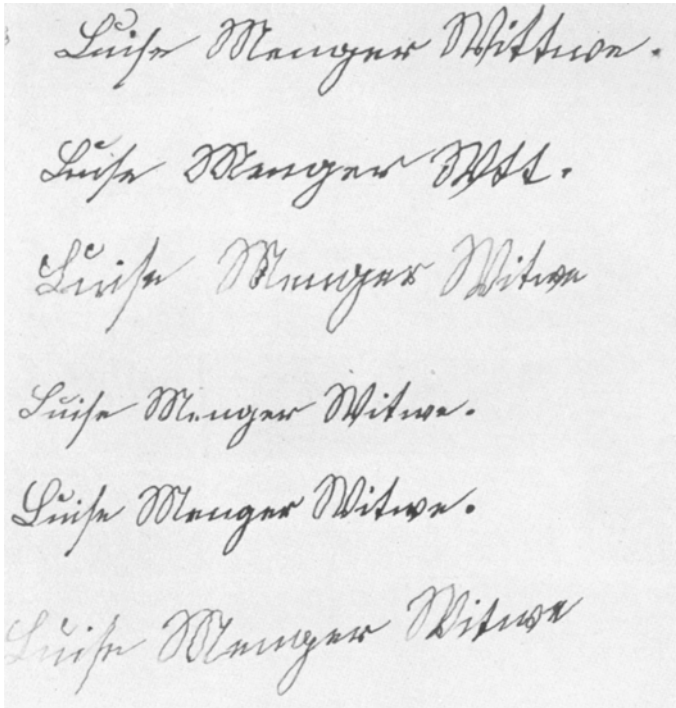 Luise Menger Wittwe.
Luise Menger Wtt.
Luise Menger Witwe
Luise Menger Witwe.
Luise Menger Witwe.
Luise Menger Witwe